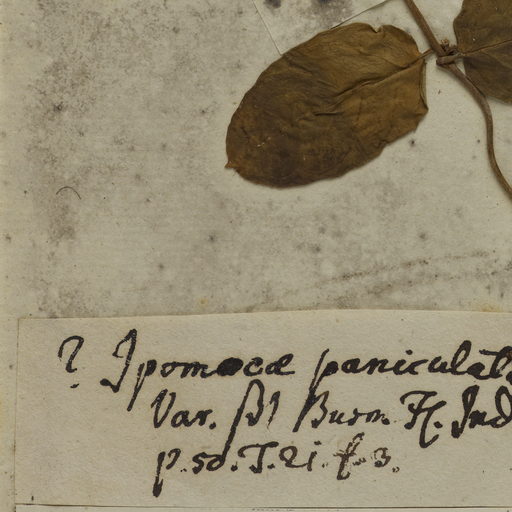 ? Ipomoeæ paniculat
Var. β Burm. Fl. Ind
p. 50. T. 21. f. 3.